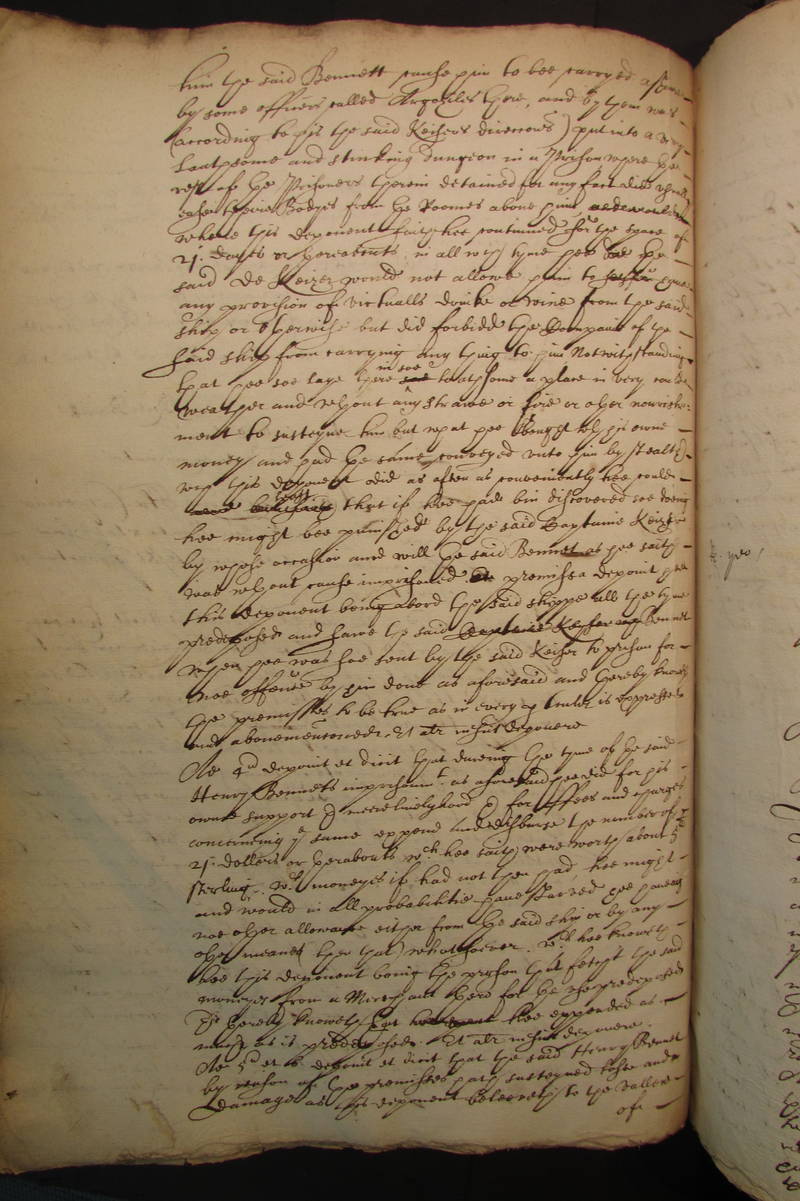 him the said Bennett cause him to bee carryed a shoare
by some officers called Argoziles there, and by them was
(according to his the said Keisers direccons) put into a very
loathsome and stinking dungeon in a Prison where the
rest of the Prisoners therein detained for any fact did
ease theire Bodyes from the Roomes above him
where this deponent saith hee continued for the space of
21. dayes or thereabouts in all wch tyme hee the
said De Keizer would not allowe him to
any provision of victualls drinke or wine from the said
ship or otherwise but did forbidd the Company of the
said ship from carrying any thing to him Notwithstanding
that hee soe laye there in soe loathsome a place in very could
weather and without any strawe or fire or other nourish=
ment to susteyne him but what hee bought with his owne
money and had the same conveyed unto him by stealth
wch this deponent did as often as conveniently hee could
that if hee had bin discovered soe doeing
hee might bee punished by the said Captaine Keizer
by whose occasion and will the said Bennet as hee saith
was without cause imprisoned the premisses deposit hee
this deponent being abord the said shipp all the tyme
predeposed and sawe the said Bennet
when hee was soe sent by the said Keiser to prison for
noe offence by him done as aforesaid and thereby knoweth
the premisses to be true as in every is expressed
and abovemenconed. Et alr nescit deponere
Ad 4d deponit et dicit that during the tyme of the said
Henry Bennets imprisonmt. as aforesaid hee did for his
owne support & meere livelyhood & for ffees and charges
concerning ye same expend and disburse the number of
21. dollers or thereabouts wch hee saith were worth about 5li
sterling. wch moneyes if had not then had hee might
and would in all probabilitie have starved hee haveing
noe other allowance either from the said ship or by any
other meanes (then that) whatsoever. wch hee knoweth
hee this deponent being the person that fetcht the said
moneyes from a Merchant there for the use predeposed
& thereby knoweth that hee expended as
much as is predeposed. Et alr nescit deponere.
Ad 5d et 6. deponit et dicit that the said Henry Bennet
by reason of the premisses hath susteyned losse and
damage as this deponent beleeveth to the vallew
of